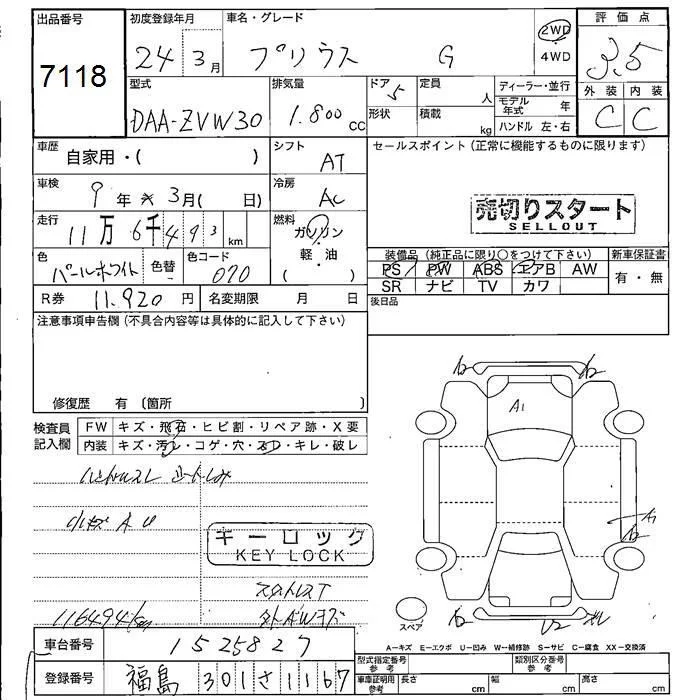 出品番号
7118
初度登録年月
24 3月
車名・グレード
プリウス G
2WD
4WD
評価点
3.5
外装 内装
C C
型式
DAA-ZVW30
排気量
1.800 cc
ドア 5
形状
定員 人
積載 kg
ディーラー・並行
モデル年式 年
ハンドル 左・右
車歴
自家用・( )
シフト
AT
セールスポイント(正常に機能するものに限ります)
車検
9年 3月( 日)
冷房
AC
売切りスタート
SELLOUT
走行
11万6千493km
燃料
ガソリン
・
軽・油
( )
装備品(純正品に限り○をつけて下さい) 新車保証書
PS PW ABS エアB AW
SR ナビ TV カワ
有・無
色
パールホワイト
色替
色コード
070
後日品
R券 11.920円 名変期限 月 日
注意事項申告欄(不具合内容等は具体的に記入して下さい)
修復歴 有(箇所 )
検査員
記入欄
FW キズ・飛石・ヒビ割・リペア跡・X要
内装 キズ・汚レ・コゲ・穴・スレ・キレ・破レ
ハンドルスレ シートしみ
小キズ A U
キーロック
KEY LOCK
116494km
A1
A2
A2
A1
A2
A2
U2
スペア
A―キズ E―エクボ U―凹み W―補修跡 S―サビ C―腐食 XX―交換済
車台番号
1525827
型式指定番号
参考
類別区分番号
参考
登録番号
福島 301 さ 1167
車庫証明用
参考
長さ cm
幅 cm
高さ cm